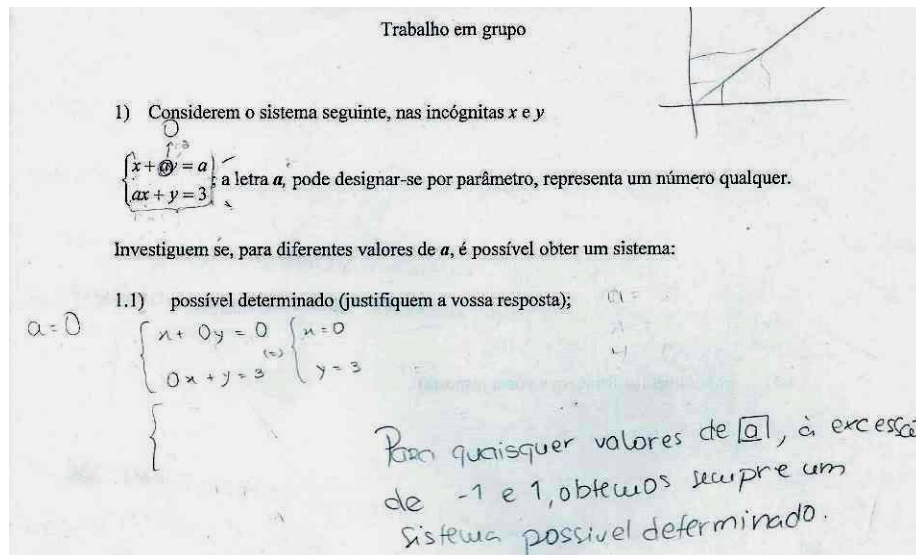 Trabalho em grupo
1) Considerem o sistema seguinte, nas incógnitas x e y
0
{x + ay = a
{ax + y = 3 ; a letra a, pode designar-se por parâmetro, representa um número qualquer.
Investiguem se, para diferentes valores de a, é possível obter um sistema:
1.1) possível determinado (justifiquem a vossa resposta);
a =
a=0 { x + 0y = 0 (=) { x = 0
{ 0x + y = 3 { y = 3
{
Para quaisquer valores de a, à excessão
de -1 e 1, obtemos sempre um
sistema possivel determinado.